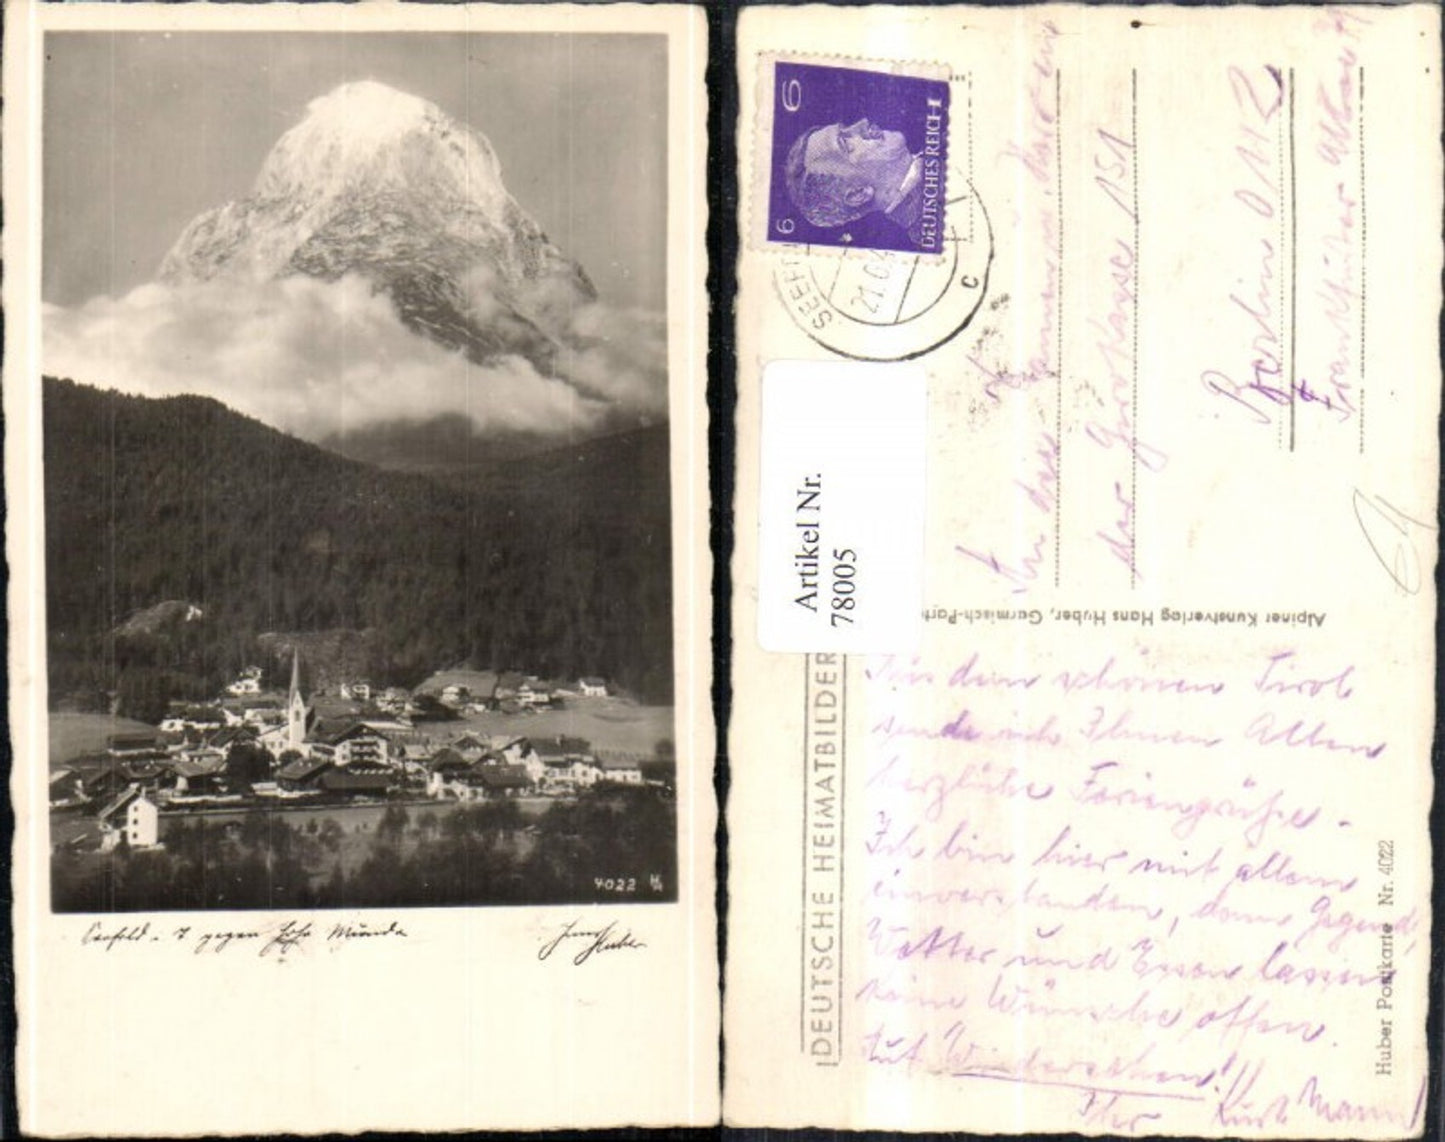 4022
Seefeld. T gegen Hohe Munde
Hans Huber
6
6
DEUTSCHES REICH
21.
c
Artikel Nr.
78005
der Girokasse 151
Berlin O 112
Frankfurter Allee
Alpiner Kunstverlag Hans Huber, Garmisch-Parte
DEUTSCHE HEIMATBILDER
Huber Postkarte Nr. 4022
Aus dem schönen Tirol
sende ich Ihnen Allen
herzliche Feriengrüße.
Ich bin hier mit allem
einverstanden, denn Gegend,
Wetter und Essen lassen
keine Wünsche offen.
Auf Wiedersehen!
Ihr Kurt Mann